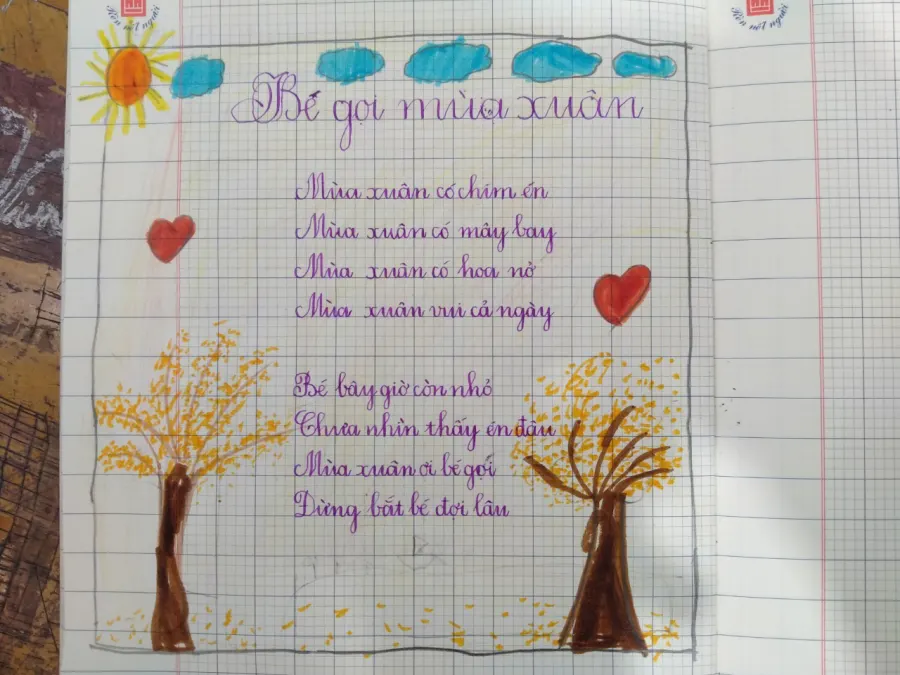 Rèn nét người
Rèn nét người
Bé gọi mùa xuân
Mùa xuân có chim én
Mùa xuân có mây bay
Mùa xuân có hoa nở
Mùa xuân vui cả ngày
Bé bây giờ còn nhỏ
Chưa nhìn thấy én đâu
Mùa xuân ơi bé gọi
Đừng bắt bé đợi lâu